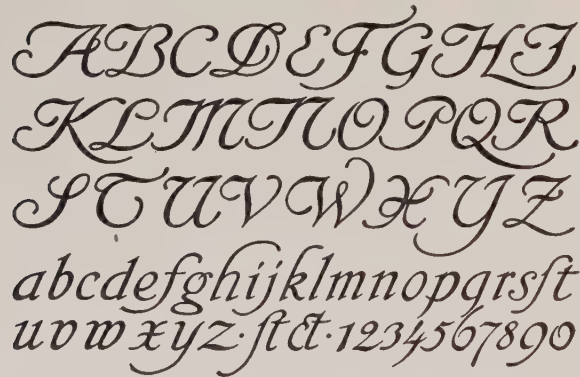 ABCDEFGHI
KLMNOPQR
STUVWXYZ
abcdefghijklmnopqrsſt
uvwxyz·ſtct·1234567890